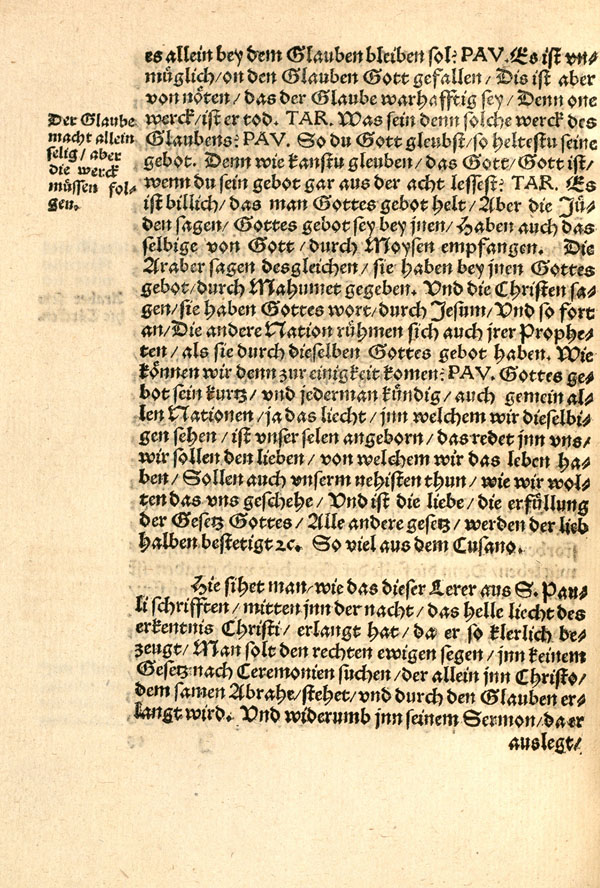 es allein bey dem Glauben bleiben sol: PAV. Es ist vn⸗
müglich/on den Glauben Gott gefallen/ Dis ist aber
von nöten/das der Glaube warhafftig sey/ Denn one
werck/ist er tod. TAR. Was sein denn solche werck des
Glaubens: PAV. So du Gott gleubst/so heltestu seine
gebot. Denn wie kanstu gleuben/das Gott/Gott ist/
wenn du sein gebot gar aus der acht lessest: TAR. Es
ist billich/das man Gottes gebot helt/ Aber die Jü⸗
den sagen/Gottes gebot sey bey jnen/Haben auch das
selbige von Gott/durch Moysen empfangen. Die
Araber sagen desgleichen/sie haben bey jnen Gottes
gebot/durch Mahumet gegeben. Vnd die Christen sa⸗
gen/sie haben Gottes wort/durch Jesum/Vnd so fort
an/Die andere Nation rühmen sich auch jrer Prophe⸗
ten/als sie durch dieselben Gottes gebot haben. Wie
können wir denn zur einigkeit komen: PAV. Gottes ge⸗
bot sein kurtz/vnd jederman kündig/auch gemein al⸗
len Nationen/ja das liecht/jnn welchem wir dieselbi⸗
gen sehen/ist vnser selen angeborn/das redet jnn vns/
wir sollen den lieben/von welchem wir das leben ha⸗
ben/Sollen auch vnserm nehisten thun/wie wir wol⸗
ten das vns geschehe/Vnd ist die liebe/die erfüllung
der Gesetz Gottes/Alle andere gesetz/werden der lieb
halben bestetigt ꝛc. So viel aus dem Cusano.
Der Glaube
macht allein
selig/aber
die werck
müssen fol⸗
gen.
Hie sihet man/wie das dieser Lerer aus S. Pau⸗
li schrifften/mitten jnn der nacht/das helle liecht des
erkentnis Christi/erlangt hat/da er so klerlich be⸗
zeugt/Man solt den rechten ewigen segen/jnn keinem
Gesetz nach Ceremonien suchen/der allein jnn Christo/
dem samen Abrahe/stehet/vnd durch den Glauben er⸗
langt wird. Vnd widerumb jnn seinem Sermon/da er
auslegt/